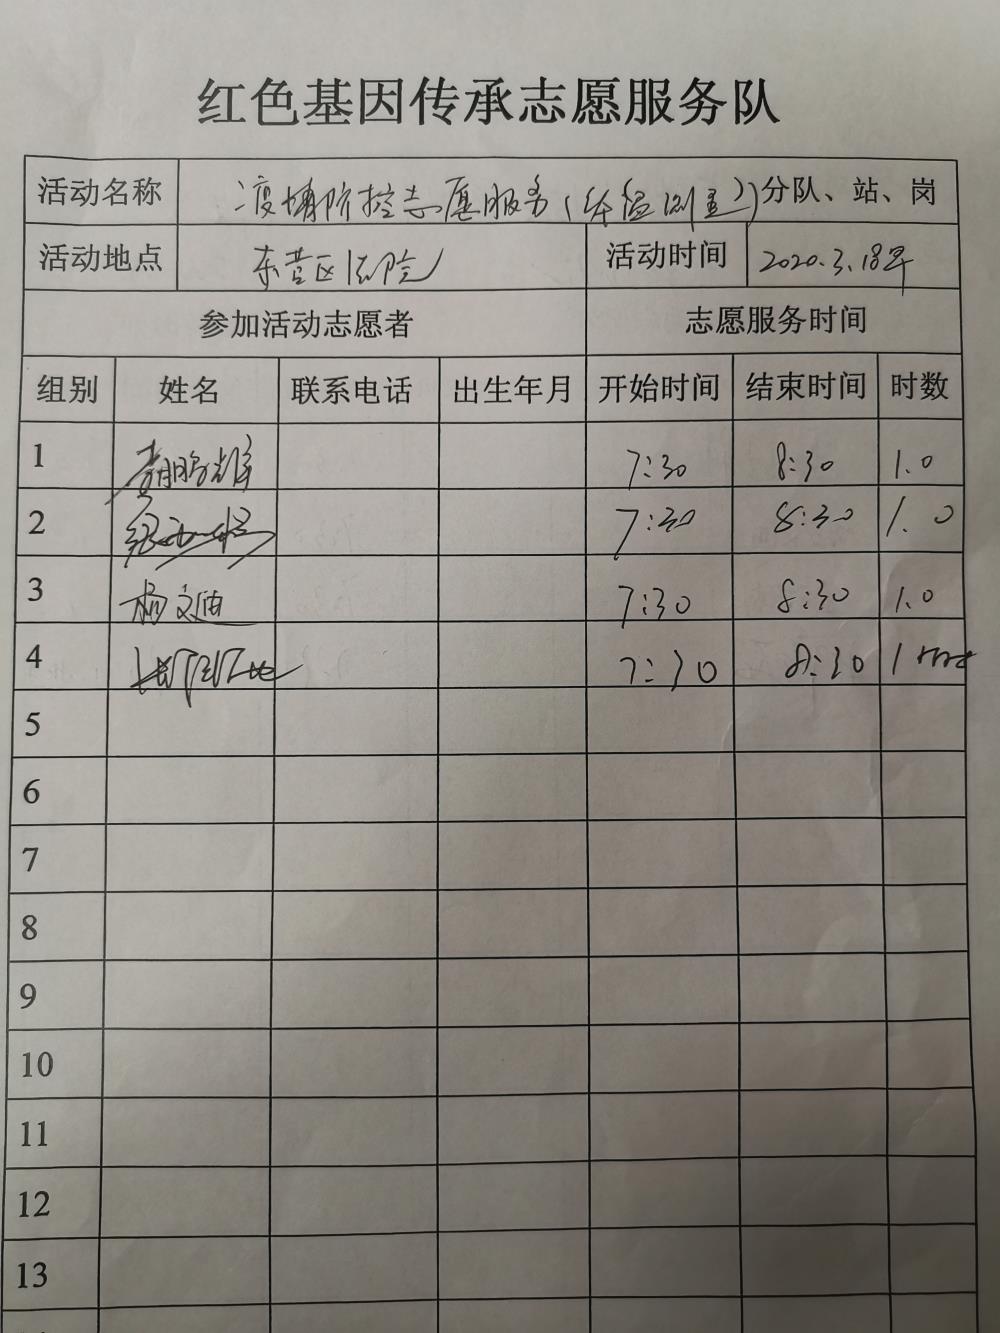 红色基因传承志愿服务队
活动名称 疫情防控志愿服务(体温测量)分队、站、岗
活动地点 东营区法院 活动时间 2020.3.18早
参加活动志愿者 志愿服务时间
组别 姓名 联系电话 出生年月 开始时间 结束时间 时数
1 7:30 8:30 1.0
2 7:30 8:30 1.0
3 杨文迪 7:30 8:30 1.0
4 7:30 8:30 1
5
6
7
8
9
10
11
12
13